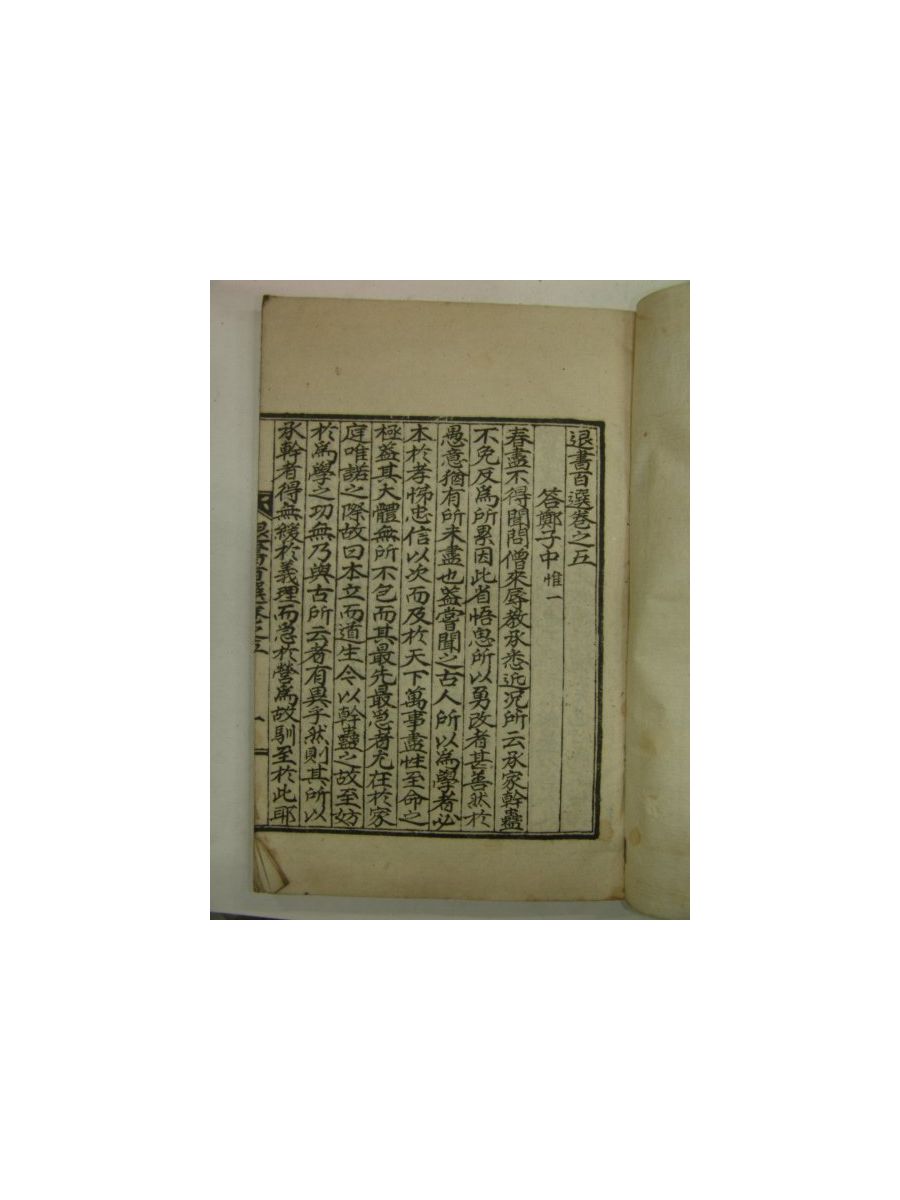 退書百選卷之五
答鄭子中惟一
春盡不得聞問僧來辱敎承悉近況所云承家幹蠱
不免反爲所累因此省悟思所以勇改者甚善然於
愚意猶有所未盡也蓋嘗聞之古人所以爲學者必
本於孝悌忠信以次而及於天下萬事盡性至命之
極蓋其大體無所不包而其最先最急者尤在於家
庭唯諾之際故曰本立而道生今以幹蠱之故至妨
於爲學之功無乃與古所云者有異乎然則其所以
承幹者得無緩於義理而急於營爲故馴至於此耶
退書百選卷之五
一